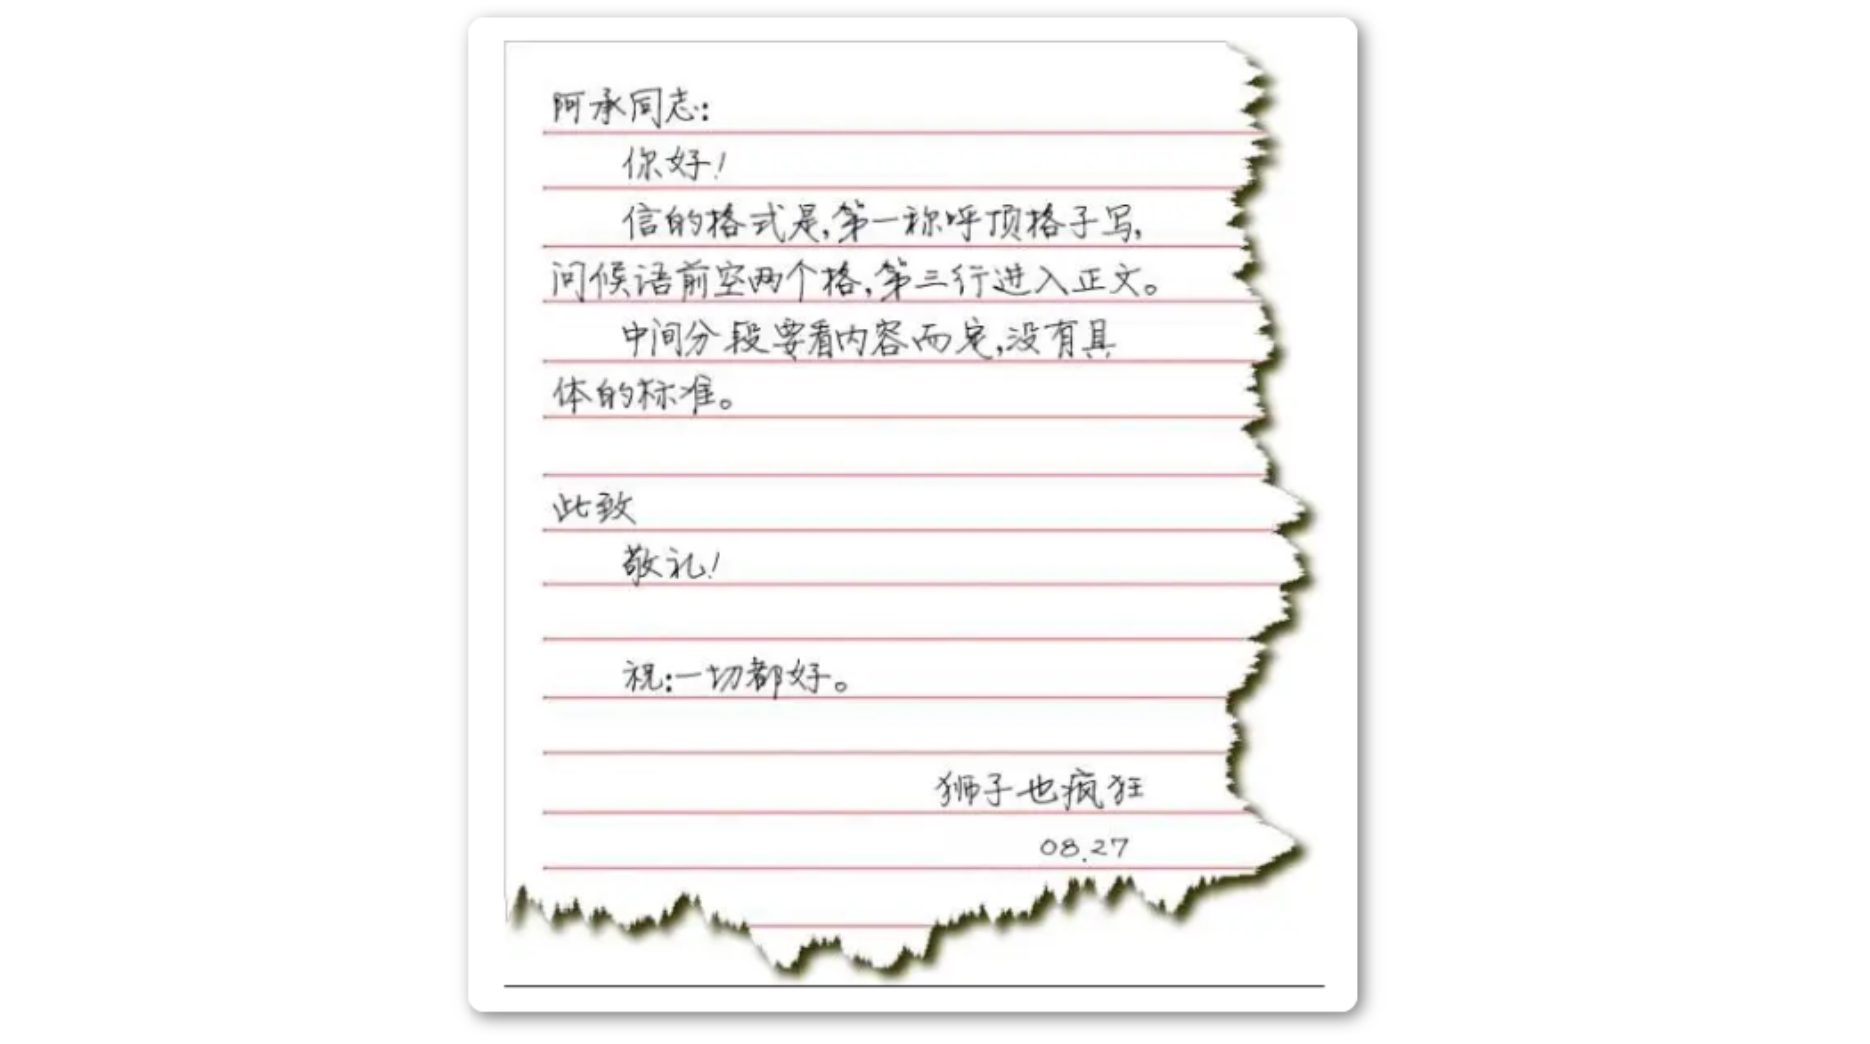 阿承同志:
你好!
信的格式是,第一称呼顶格子写,
问候语前空两个格,第三行进入正文。
中间分段要看内容而定,没有具
体的标准。
此致
敬礼!
祝:一切都好。
狮子也疯狂
08.27